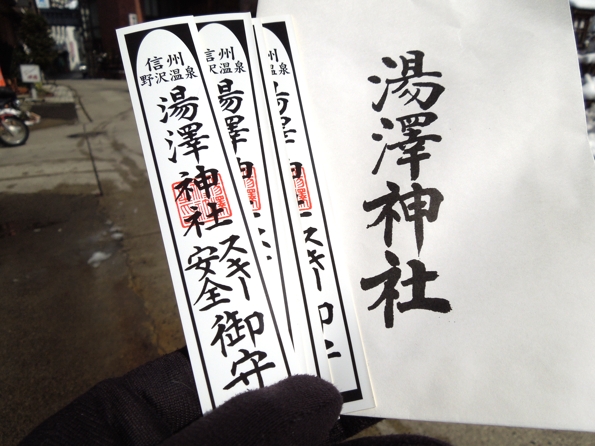 信州
野沢温泉
湯澤神社
スキー
安全
御守
信州
野沢温泉
湯澤神
ス
州
温泉
スキー
御守
湯澤神社